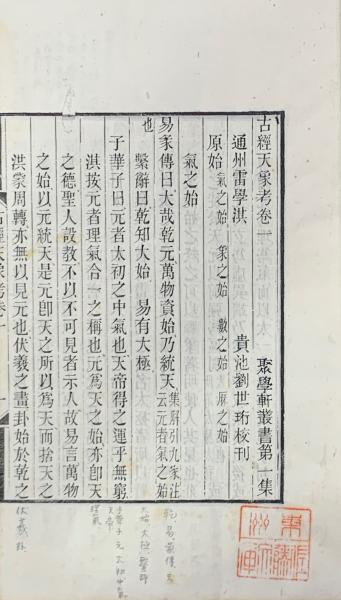 古經天象考卷一 聚學軒叢書第一集
通州雷學淇 貴池劉世珩校刊
原始 氣之始 象之始 數之始 厤之始
氣之始
易彖傳曰大哉乾元萬物資始乃統天 集解引九家注云元者氣之始
也
繫辭曰乾知大始 易有大極
子華子曰元者太初之中氣也天帝得之運乎無窮
淇按元者理氣合一之稱也元爲天之始亦卽天
之德聖人設教不以不可見者示人故易言萬物
之始以元統天是元卽天之所以爲天而捨天之
洪蒙周轉亦無以見元也伏羲之畫卦始於乾之
古經天象考卷一